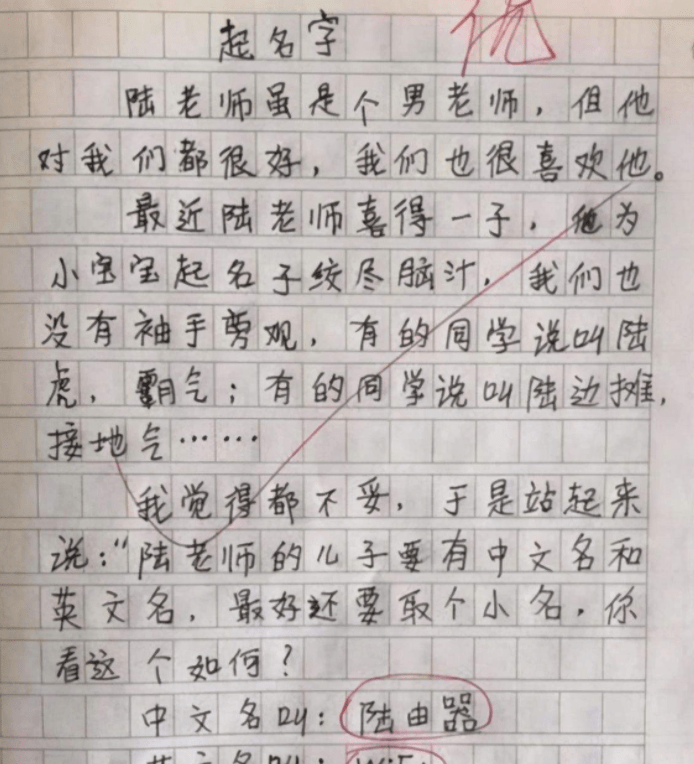 起名字
优
陆老师虽是个男老师，但他
对我们都很好，我们也很喜欢他。
最近陆老师喜得一子，他为
小宝宝起名子绞尽脑汁，我们也
没有袖手旁观，有的同学说叫陆
虎，霸气；有的同学说叫陆边摊，
接地气……
我觉得都不妥，于是站起来
说：“陆老师的儿子要有中文名和
英文名，最好还要取个小名，你
看这个如何？
中文名叫：陆由器
英文名叫：WiFi